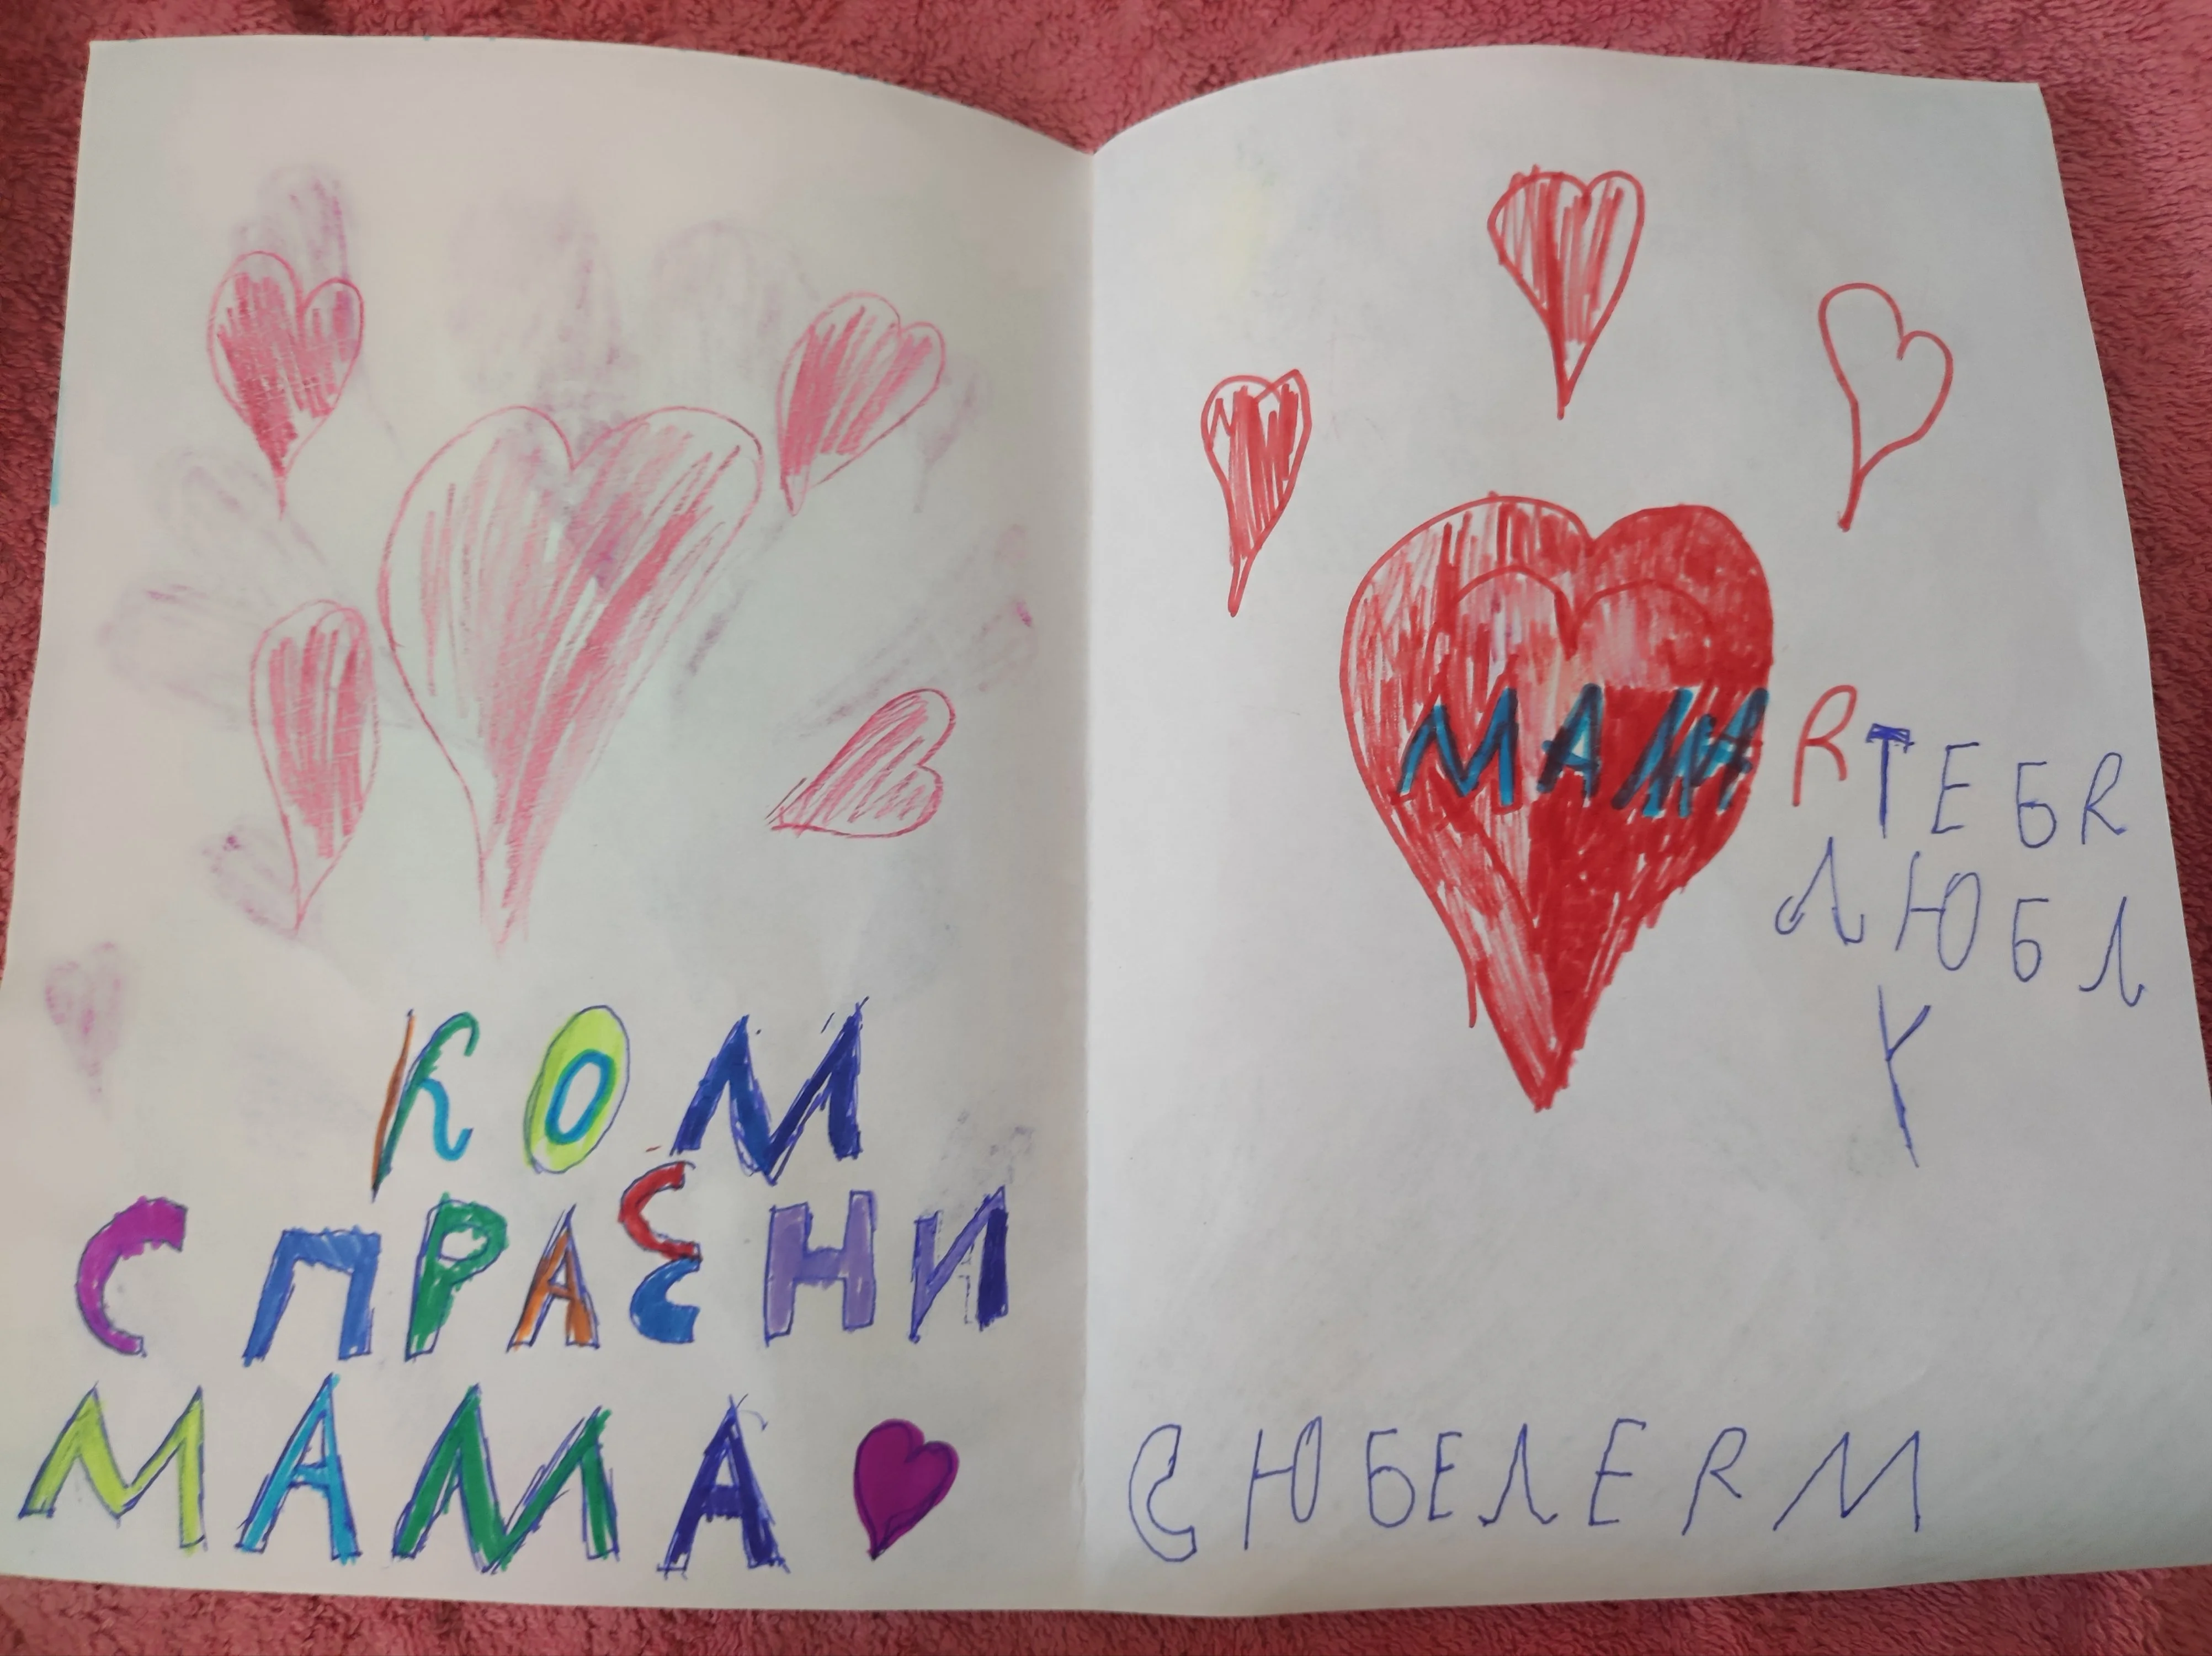 КОМ
СПРАЕНИ
МАМА
МАМА
R ТЕБR
ЛЮБЛ
У
С ЮБЕЛЕRМ